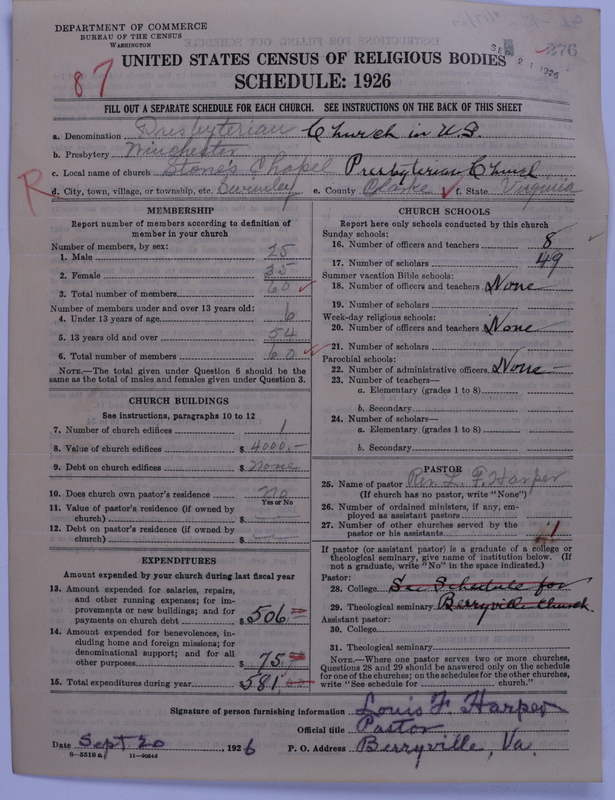 DEPARTMENT OF COMMERCE
BUREAU OF THE CENSUS
WASHINGTON
87
SEP 21 1926
376
UNITED STATES CENSUS OF RELIGIOUS BODIES
SCHEDULE: 1926
FILL OUT A SEPARATE SCHEDULE FOR EACH CHURCH. SEE INSTRUCTIONS ON THE BACK OF THIS SHEET
a. Denomination Presbyterian Church in U.S.
b. Presbytery Winchester
c. Local name of church Stone's Chapel Presbyterian Church
R
d. City, town, village, or township, etc. e. County Clarke f. State Virginia
MEMBERSHIP
Report number of members according to definition of member in your church
Number of members, by sex:
1. Male 25
2. Female 35
3. Total number of members 60
Number of members under and over 13 years old:
4. Under 13 years of age 6
5. 13 years old and over 54
6. Total number of members 60
NOTE.—The total given under Question 6 should be the same as the total of males and females given under Question 3.
CHURCH BUILDINGS
See instructions, paragraphs 10 to 12
7. Number of church edifices 1
8. Value of church edifices $ 4000.—
9. Debt on church edifices $ None
10. Does church own pastor's residence No
Yes or No
11. Value of pastor's residence (if owned by church) $
12. Debt on pastor's residence (if owned by church) $
EXPENDITURES
Amount expended by your church during last fiscal year
13. Amount expended for salaries, repairs, and other running expenses; for improvements or new buildings; and for payments on church debt $ 506
14. Amount expended for benevolences, including home and foreign missions; for denominational support; and for all other purposes $ 75
15. Total expenditures during year $ 581
CHURCH SCHOOLS
Report here only schools conducted by this church
Sunday schools:
16. Number of officers and teachers 8
17. Number of scholars 49
Summer vacation Bible schools:
18. Number of officers and teachers None
19. Number of scholars
Week-day religious schools:
20. Number of officers and teachers None
21. Number of scholars
Parochial schools:
22. Number of administrative officers None
23. Number of teachers—
a. Elementary (grades 1 to 8)
b. Secondary
24. Number of scholars—
a. Elementary (grades 1 to 8)
b. Secondary
PASTOR
25. Name of pastor Rev. L. F. Harper
(If church has no pastor, write "None")
26. Number of ordained ministers, if any, employed as assistant pastors
27. Number of other churches served by the pastor or his assistants 1
If pastor (or assistant pastor) is a graduate of a college or theological seminary, give name of institution below. (If not a graduate, write "No" in the space indicated.)
Pastor:
28. College See Schedule for
29. Theological seminary Berryville Church.
Assistant pastor:
30. College
31. Theological seminary
NOTE.—Where one pastor serves two or more churches, Questions 28 and 29 should be answered only on the schedule for one of the churches; on the schedules for the other churches, write "See schedule for ______ church."
Signature of person furnishing information Louis F. Harper
Official title Pastor
Date Sept 20, 1926 P. O. Address Berryville, Va.
8—5518 a 11—9054d